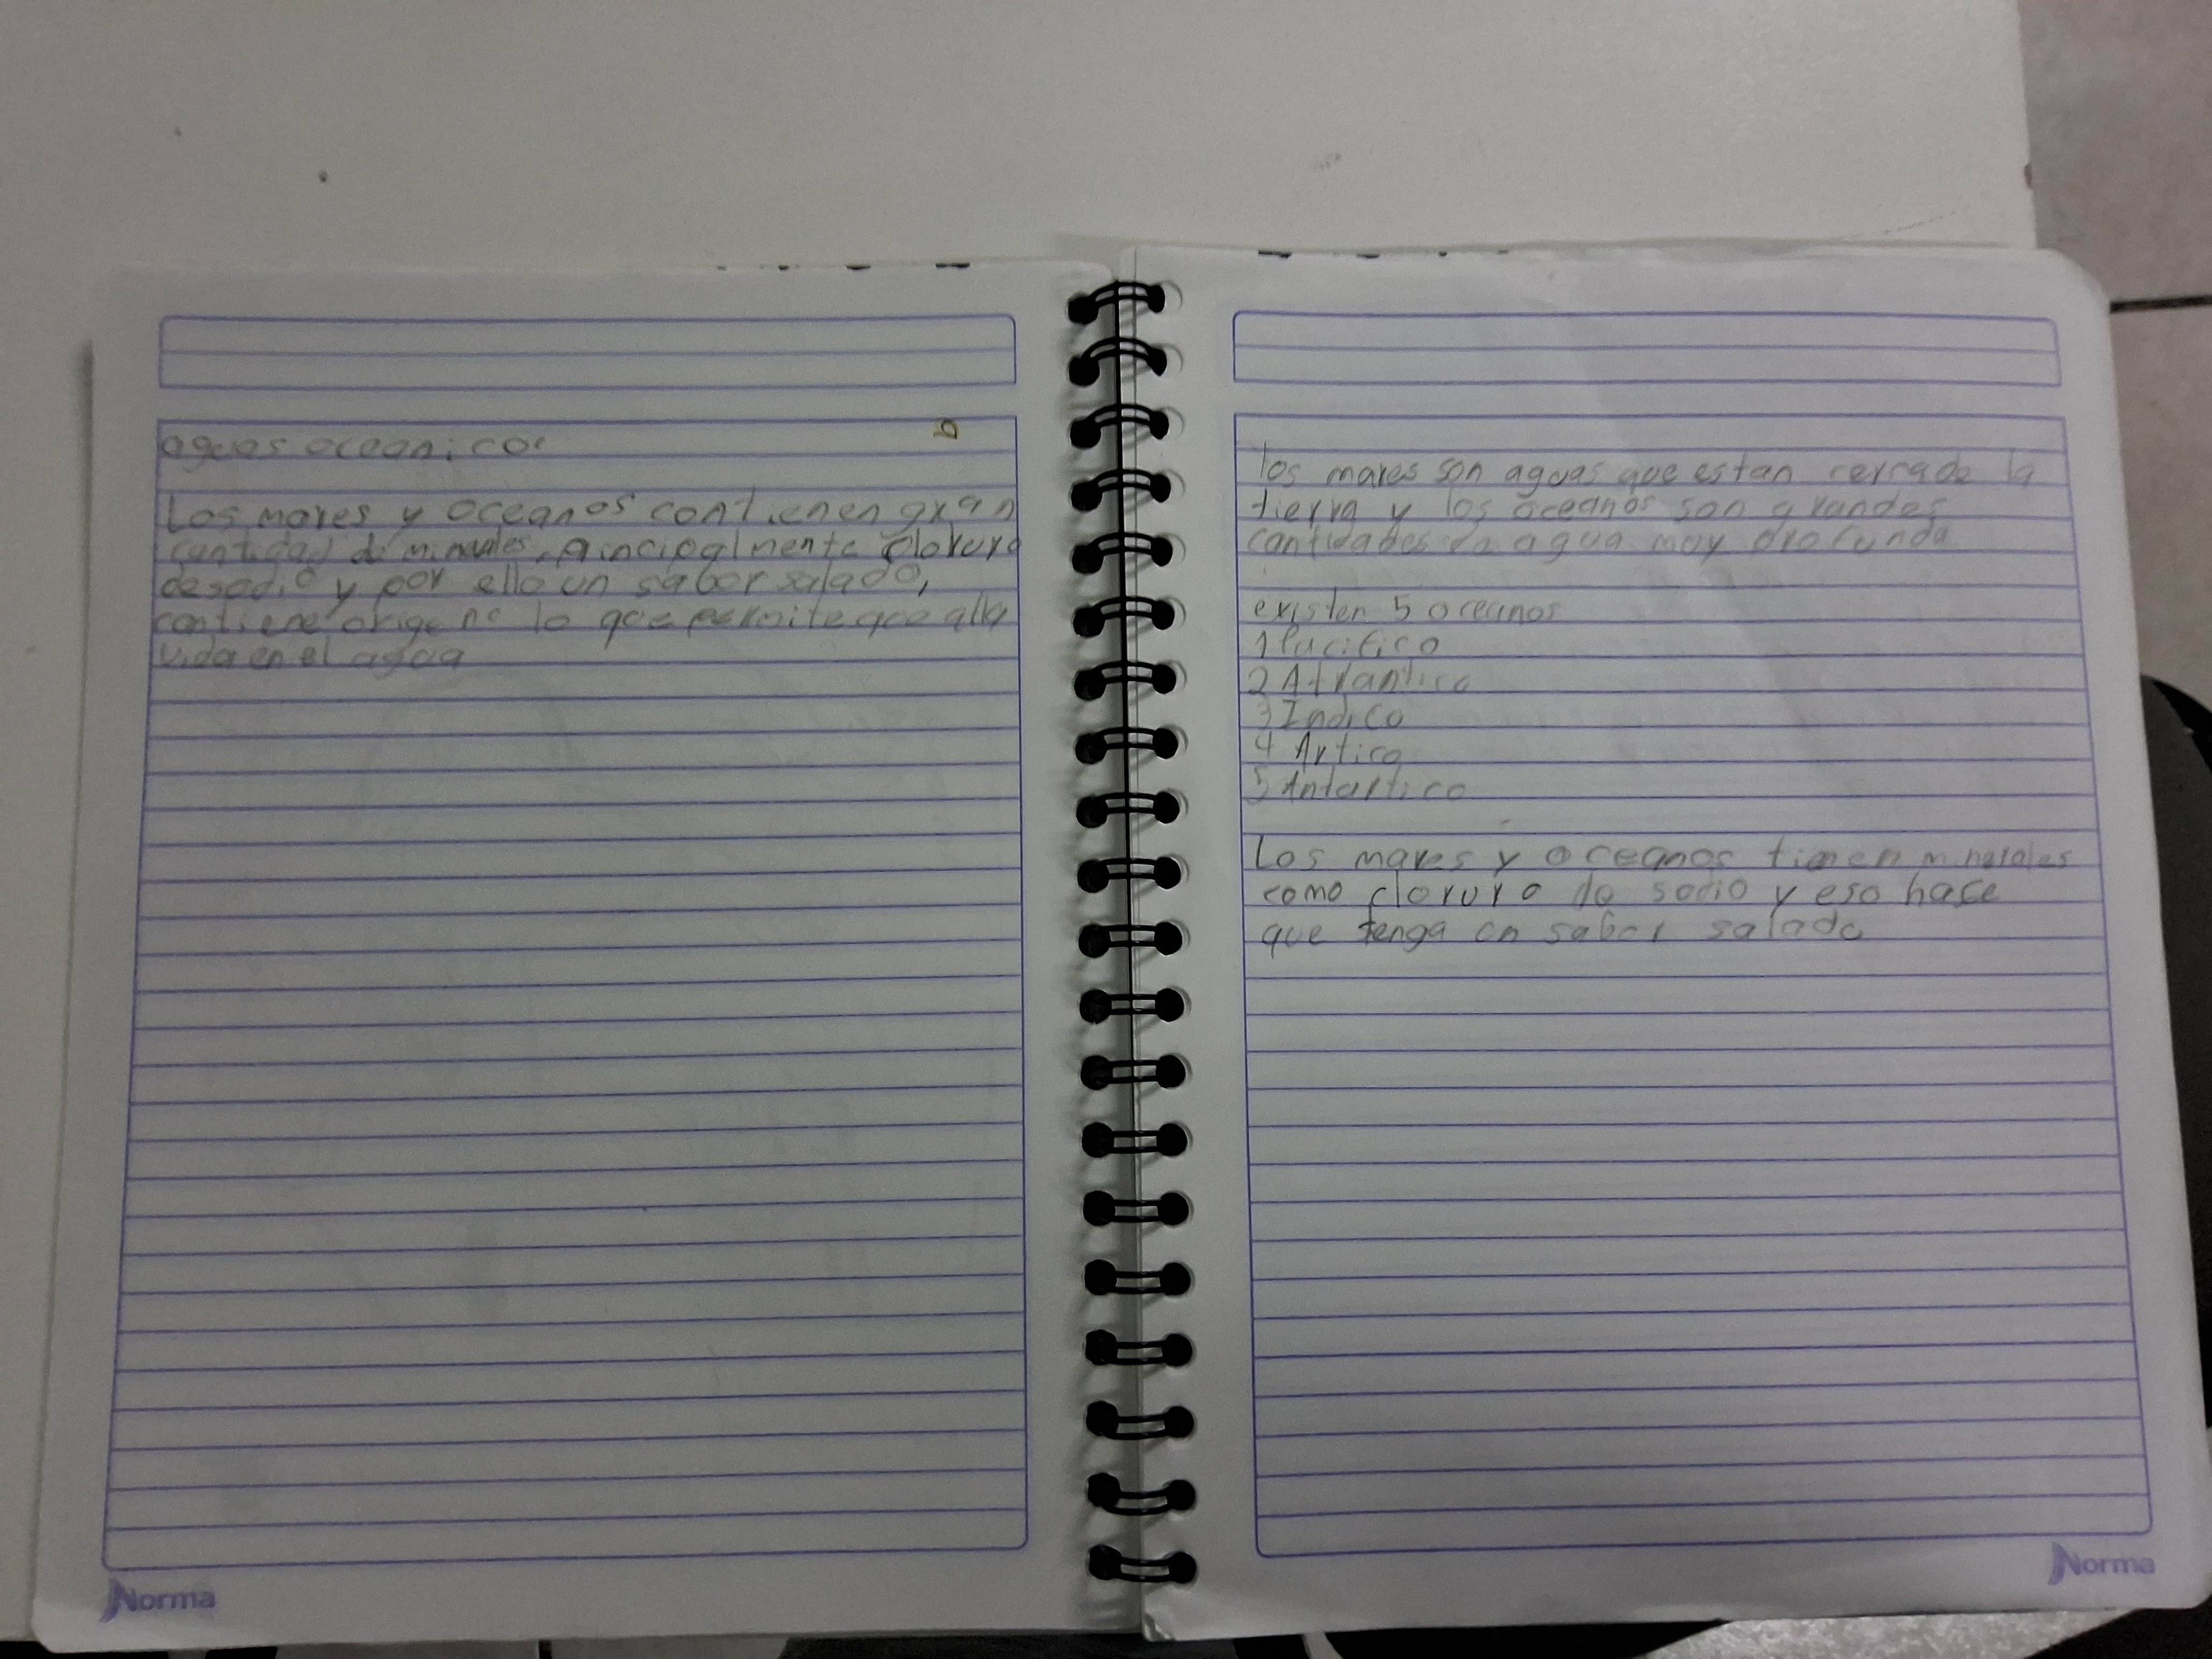 aguas oceanicos
Los mares y oceanos contienen gran
cantidad de minerales, principalmente cloruro
de sodio y por ello un sabor salado,
contiene origeno lo que permite que alla
vida en el agua
Norma
los mares son aguas que estan cerca de la
tierra y los oceanos son grandes
cantidades de agua muy profunda
existen 5 oceanos
1 Pacifico
2 Atlantico
3 Indico
4 Artico
5 Antartico
Los mares y oceanos tienen minerales
como cloruro de sodio y eso hace
que tenga un sabor salado
Norma